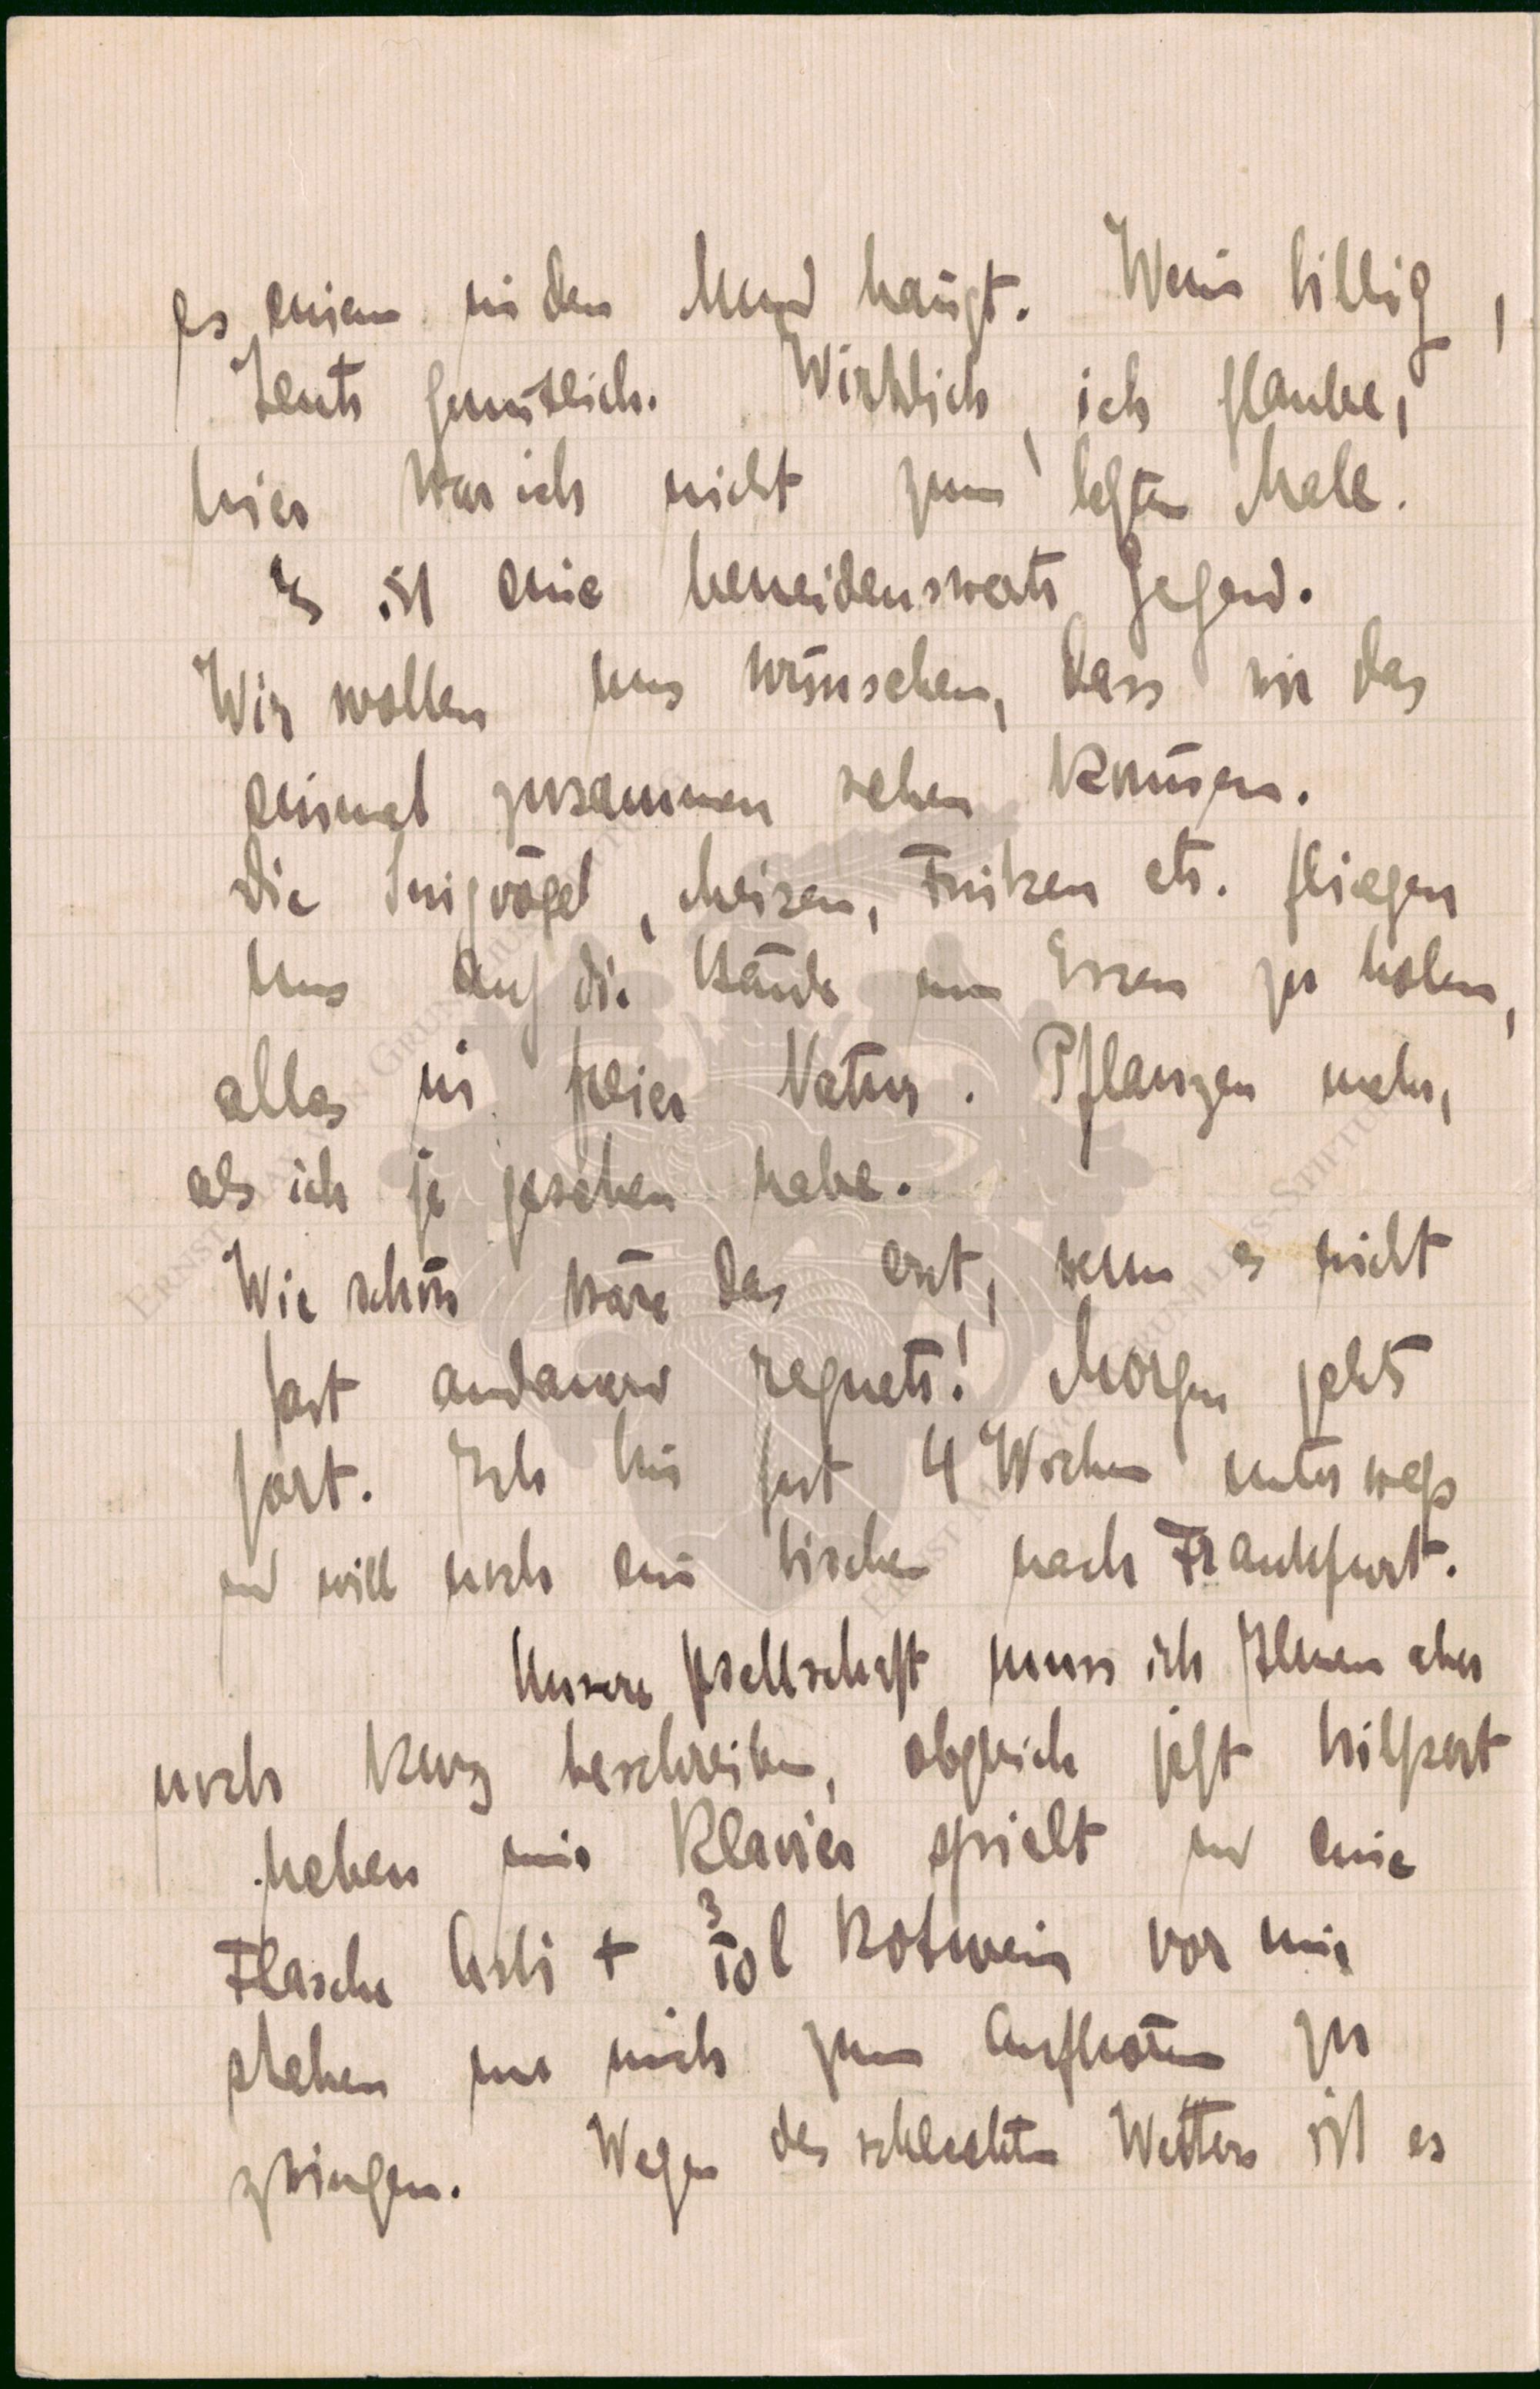 es einem in den Mund hängt. Wein billig,
Leute gemütlich. Wirklich, ich glaube,
hier war ich nicht zum letzten Male.
Es ist eine beneidenswerte Gegend.
Wir wollen uns wünschen, dass wir das
einmal zusammen sehen können.
Die Singvögel, Meisen, Finken etc. fliegen
uns auf die Hände um Essen zu holen,
alles in freier Natur. Pflanzen mehr,
als ich je gesehen habe.
Wie schön wäre das erst, wenn es nicht
fast andauernd regnete! Morgen gehts
fort. Ich bin fast 4 Wochen unterwegs
und will noch ein bischen nach Frankfurt.
Unsere Gesellschaft muss ich Ihnen aber
noch kurz beschreiben, obgleich jetzt Hilpert
neben mir Klavier spielt und eine
Flasche Asti + 3/10 l Rotwein vor mir
stehen um mich zum Aufhören zu
zwingen. Wegen des schlechten Wetters ist es
ERNST MAX VON GRUNELIUS-STIFTUNG
ERNST MAX VON GRUNELIUS-STIFTUNG